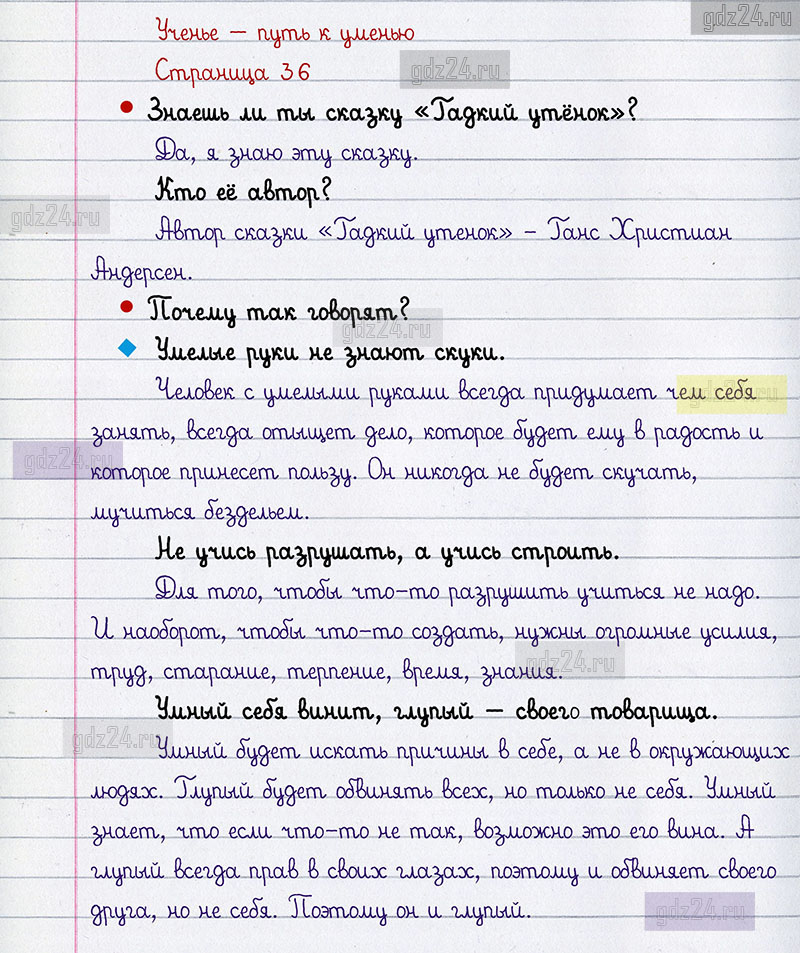 gdz24.ru
Ученье – путь к уменью
Страница 36
gdz24.ru
• Знаешь ли ты сказку «Гадкий утёнок»?
Да, я знаю эту сказку.
Кто её автор?
gdz24.ru
Автор сказки «Гадкий утенок» - Ганс Христиан
Андерсен.
• Почему так говорят?
gdz24.ru
Умелые руки не знают скуки.
Человек с умелыми руками всегда придумает чем себя
gdz24.ru
занять, всегда отыщет дело, которое будет ему в радость и
gdz24.ru
которое принесет пользу. Он никогда не будет скучать,
мучиться бездельем.
Не учись разрушать, а учись строить.
Для того, чтобы что-то разрушить учиться не надо.
И наоборот, чтобы что-то создать, нужны огромные усилия,
gdz24.ru
труд, старание, терпение, время, знания.
Умный себя винит, глупый – своего товарища.
gdz24.ru
Умный будет искать причины в себе, а не в окружающих
людях. Глупый будет обвинять всех, но только не себя. Умный
знает, что если что-то не так, возможно это его вина. А
глупый всегда прав в своих глазах, поэтому и обвиняет своего
друга, но не себя. Поэтому он и глупый.
gdz24.ru